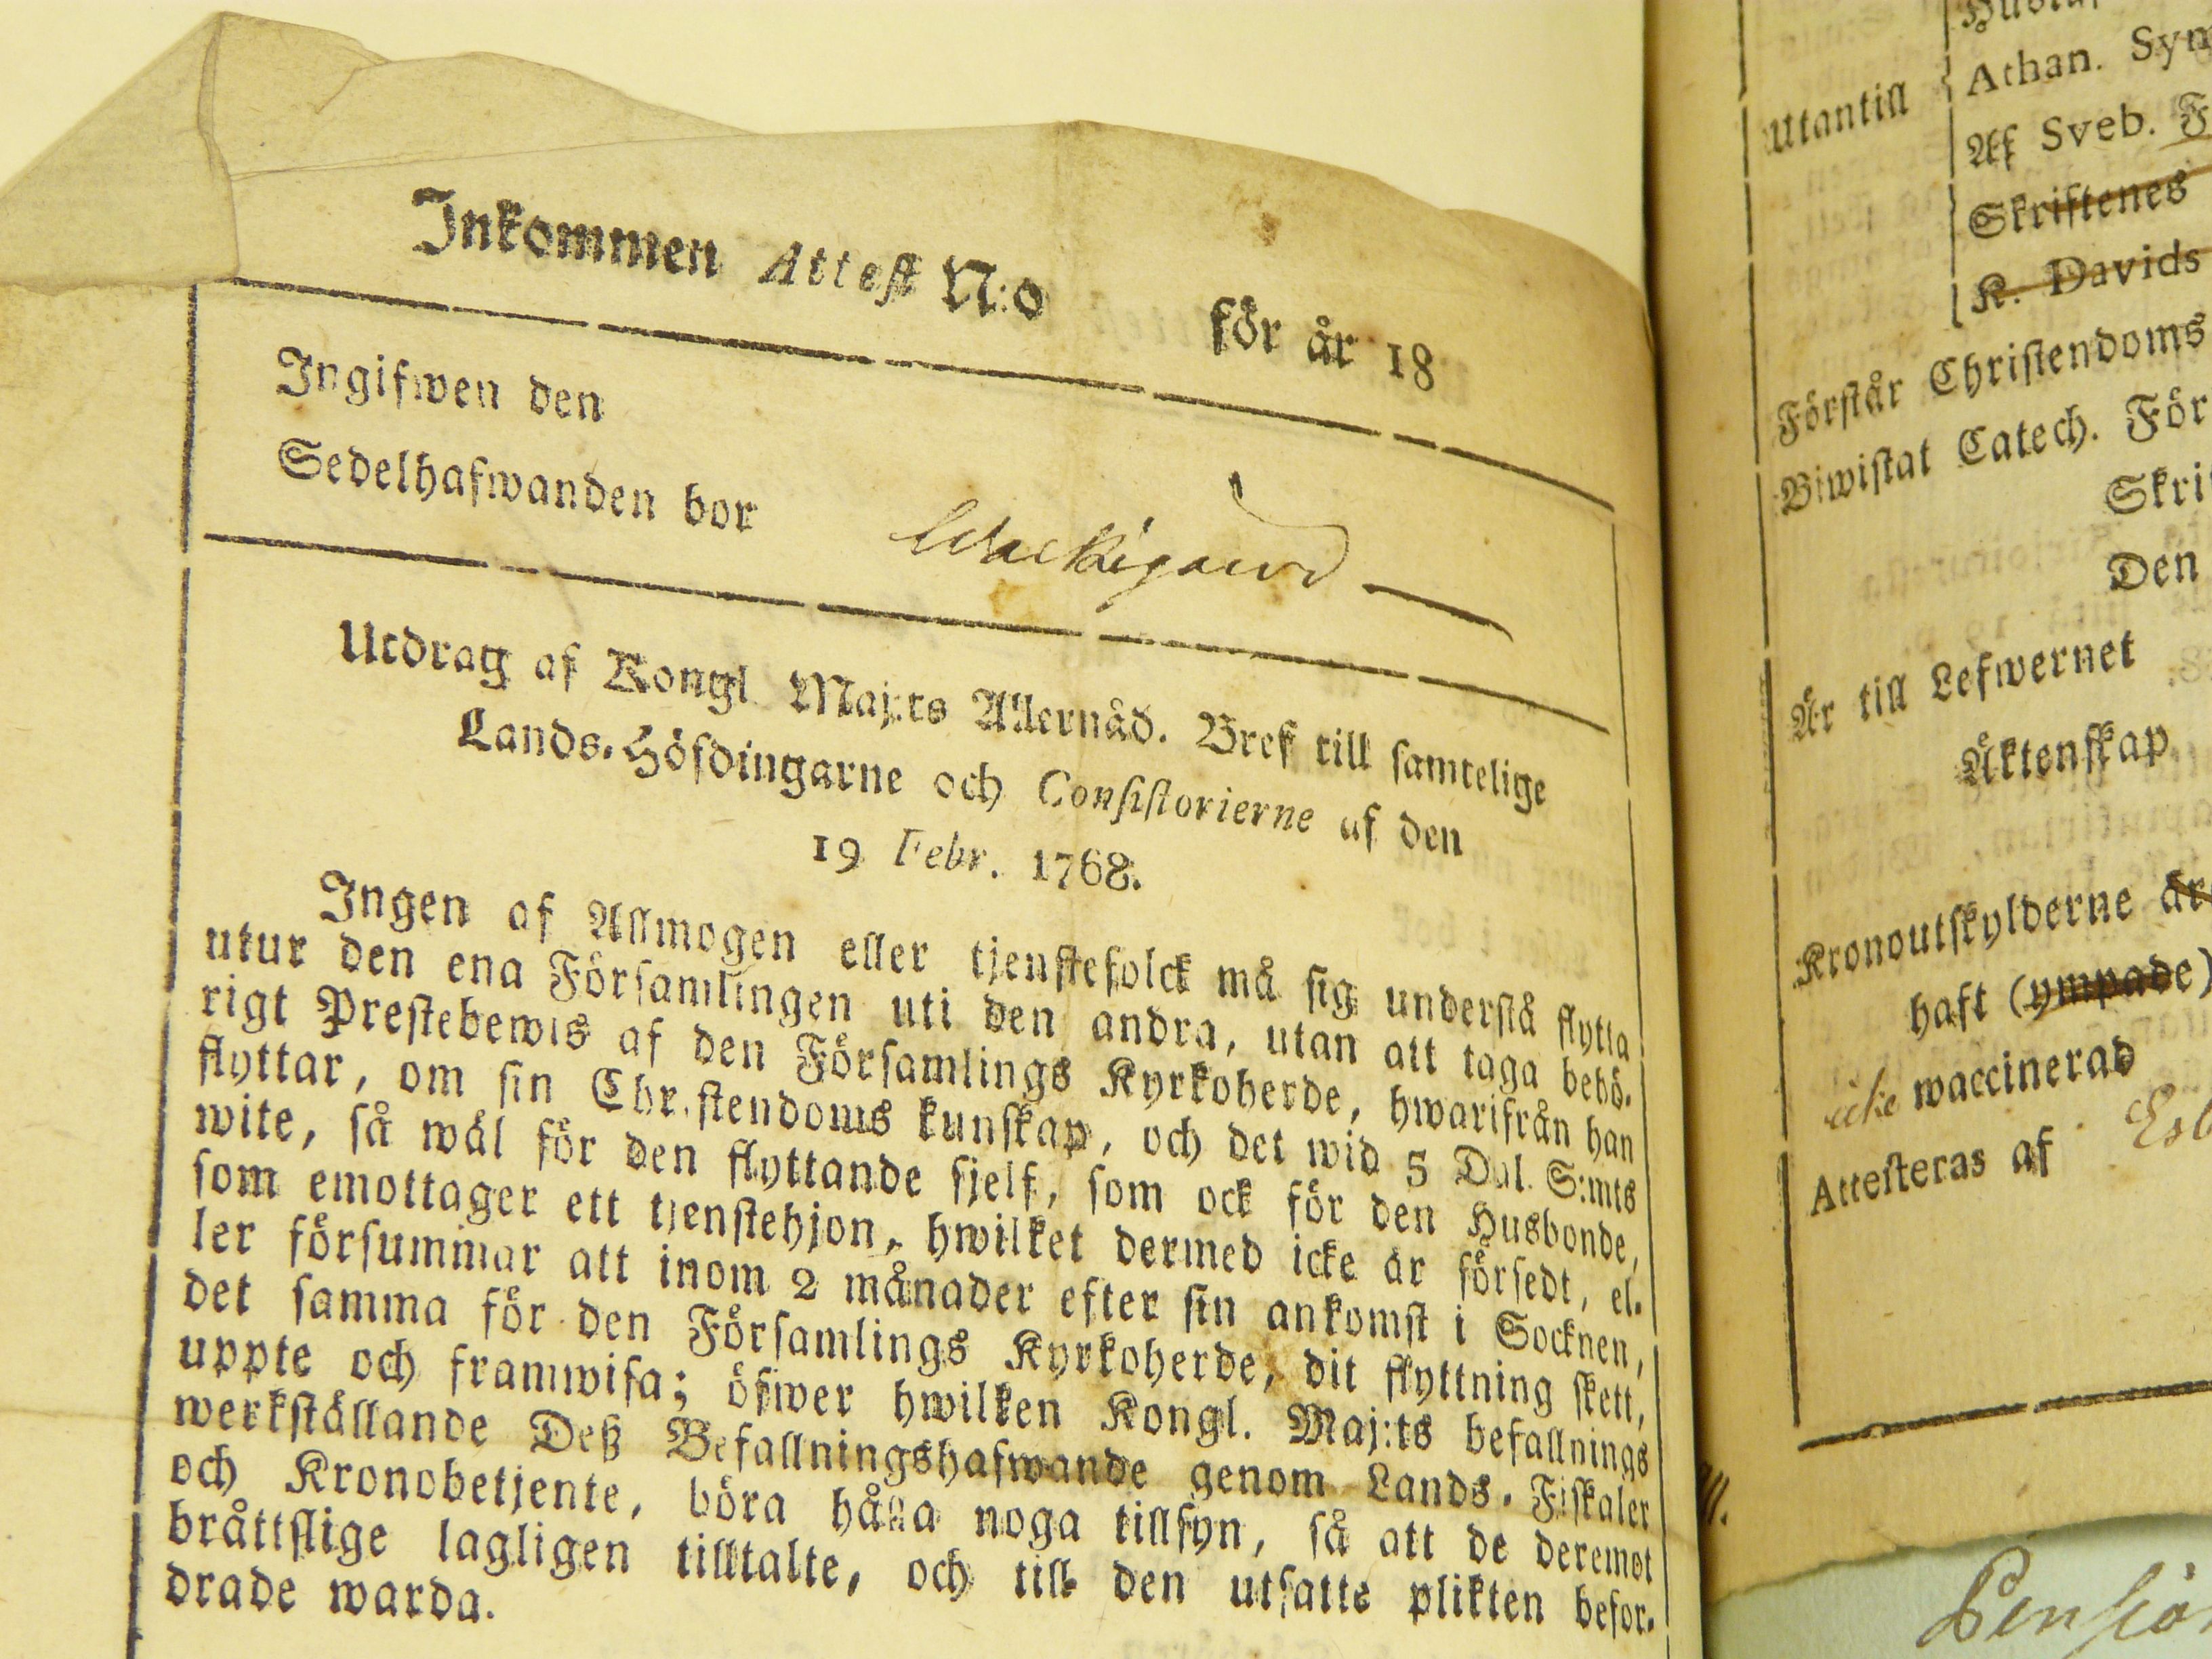 Inkommen Attest N:o för år 18
Ingifwen den
Sedelhafwanden bor
Utdrag af Kongl. Maj:ts Allernåd. Bref till samtelige
Lands-Höfdingarne och Consistorierne af den
19 Febr. 1768.
Ingen af Allmogen eller tjenstefolck må sig understå flytta
utur den ena Församlingen uti den andra, utan att taga behö-
rigt Prestebewis af den Församlings Kyrkoherde, hwarifrån han
flyttar, om sin Christendoms kunskap, och det wid 5 Dal. S:mts
wite, så wäl för den flyttande sjelf, som ock för den Husbonde,
som emottager ett tjenstehjon, hwilket dermed icke är försedt, el-
ler försummar att inom 2 månader efter sin ankomst i Socknen,
det samma för den Församlings Kyrkoherde, dit flyttning skett,
uppte och framwisa; öfwer hwilken Kongl. Maj:ts befallnings
werkställande Deß Befallningshafwande genom Lands-Fiskaler
och Kronobetjente, böra hålla noga tillsyn, så att de deremot
bråttslige lagligen tilltalte, och till den utsatte plikten befor-
drade warda.
Utantill
Athan. Sym
Af Sveb. F
Skriftenes
K. Davids
Förstår Christendoms
Biwistat Catech. För
Skri
Den
Är till Lefwernet
Äktenskap
Kronoutskylderne är
haft (ympade)
icke waccinerad
Attesteras af
Pension